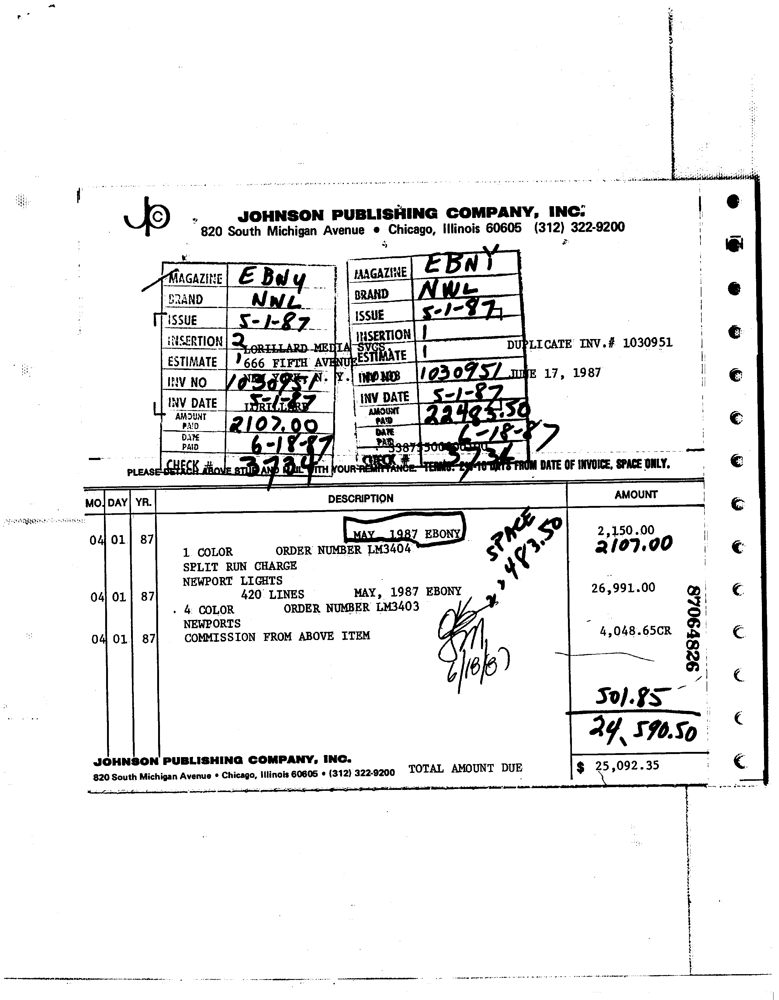 JPC
JOHNSON PUBLISHING COMPANY, INC.
820 South Michigan Avenue • Chicago, Illinois 60605 (312) 322-9200
MAGAZINE EBNY
BRAND NWL
ISSUE 5-1-87
INSERTION 2
ESTIMATE 1
INV NO 1030951
INV DATE 5-1-87
AMOUNT PAID 2107.00
DATE PAID 6-18-87
CHECK # 3734
MAGAZINE EBNY
BRAND NWL
ISSUE 5-1-87
INSERTION 1
ESTIMATE 1
INV NO 1030951
INV DATE 5-1-87
AMOUNT PAID 22483.50
DATE PAID 6-18-87
CHECK # 3734
LORILLARD MEDIA SVGS.
666 FIFTH AVENUE
NEW YORK, N. Y.
DUPLICATE INV.# 1030951
JUNE 17, 1987
PLEASE DETACH ABOVE STUB AND MAIL WITH YOUR REMITTANCE. TERMS: 2%-10 DAYS FROM DATE OF INVOICE, SPACE ONLY.
MO. DAY YR. DESCRIPTION AMOUNT
04 01 87 MAY 1987 EBONY 2,150.00
2107.00
1 COLOR ORDER NUMBER LM3404
SPLIT RUN CHARGE
NEWPORT LIGHTS
04 01 87 420 LINES MAY, 1987 EBONY 26,991.00
4 COLOR ORDER NUMBER LM3403
NEWPORTS
04 01 87 COMMISSION FROM ABOVE ITEM 4,048.65CR
SPACE
483.50
6/18/87
501.85
24,590.50
87064826
JOHNSON PUBLISHING COMPANY, INC.
820 South Michigan Avenue • Chicago, Illinois 60605 • (312) 322-9200
TOTAL AMOUNT DUE $ 25,092.35